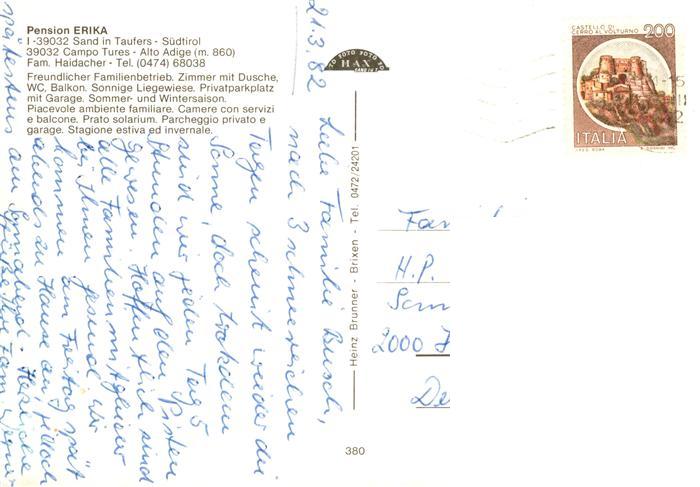 Pension ERIKA
I -39032 Sand in Taufers - Südtirol
39032 Campo Tures - Alto Adige (m. 860)
Fam. Haidacher - Tel. (0474) 68038
Freundlicher Familienbetrieb. Zimmer mit Dusche,
WC, Balkon. Sonnige Liegewiese. Privatparkplatz
mit Garage. Sommer- und Wintersaison.
Piacevole ambiente familiare. Camere con servizi
e balcone. Prato solarium. Parcheggio privato e
garage. Stagione estiva ed invernale.
21.3.82
Liebe Familie Busch,
nach 3 schneereichen
Tagen scheint wieder die
Sonne, doch trotzdem
sind wir jeden Tag 5
Stunden auf den Pisten
gewesen. Hoffentlich sind
alle Familienmitglieder
bei Ihnen gesund. Wir
kommen am Freitag spät
abends zu Hause an, jedoch
spätestens am Sonnabend. Herzliche
Grüße Ihre Fam. Wegner
FOTO FOTO FOTO
HAX
Heinz Brunner - Brixen - Tel. 0472/24201
380
CASTELLO DI
CERRO AL VOLTURNO
200
ITALIA
Fam
H.P.
2000
De